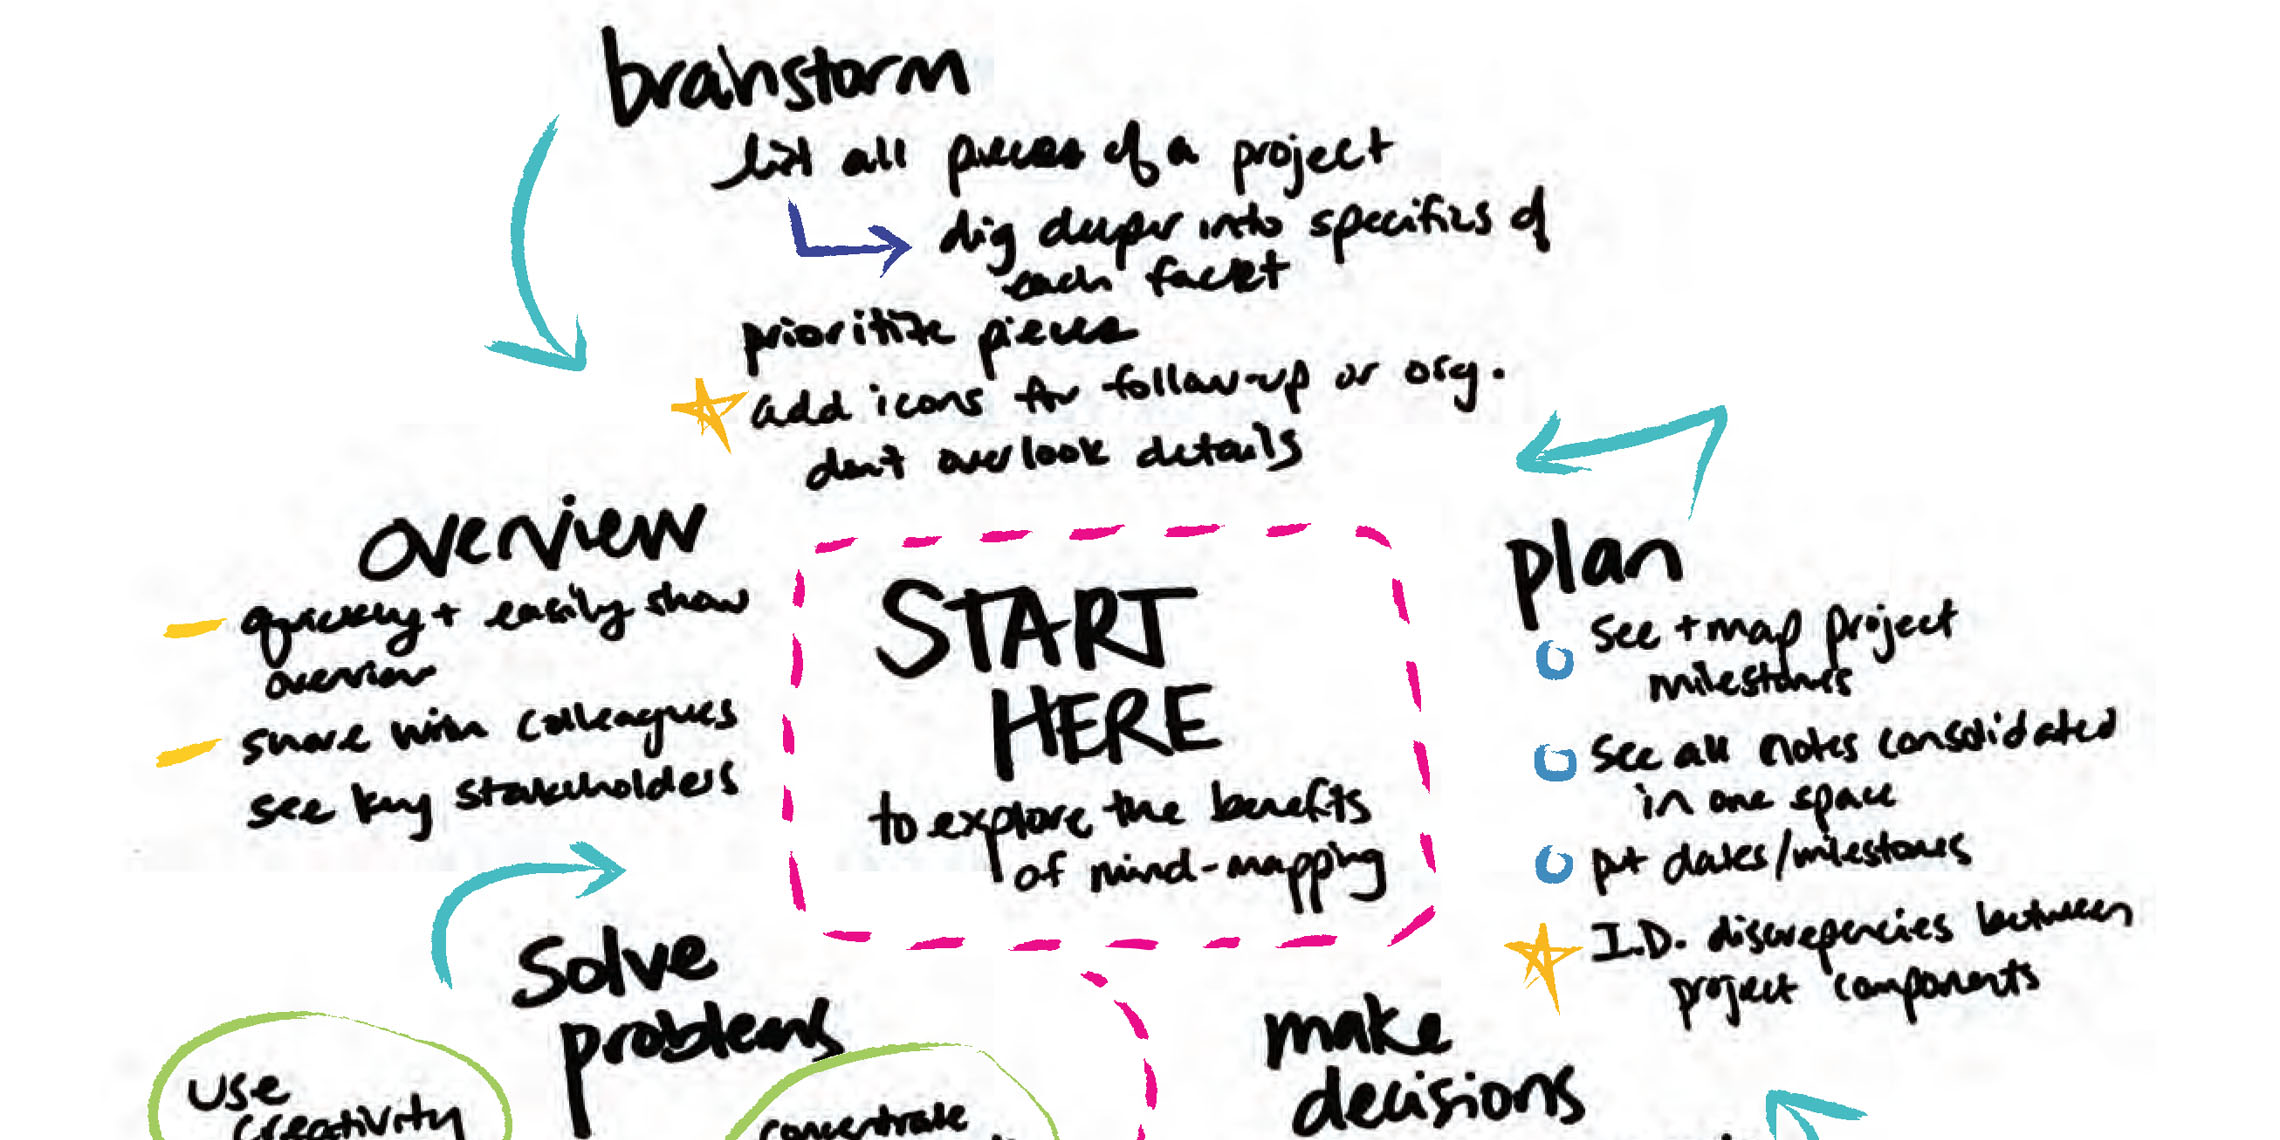 brainstorm
list all pieces of a project
dig deeper into specifics of
each facet
prioritize pieces
add icons for follow-up or org.
don't overlook details
overview
quickly + easily show
overview
share with colleagues
see key stakeholders
START
HERE
to explore the benefits
of mind-mapping
plan
see + map project
milestones
see all notes consolidated
in one space
put dates/milestones
I.D. discrepencies between
project components
solve
problems
use
creativity
concentrate
make
decisions